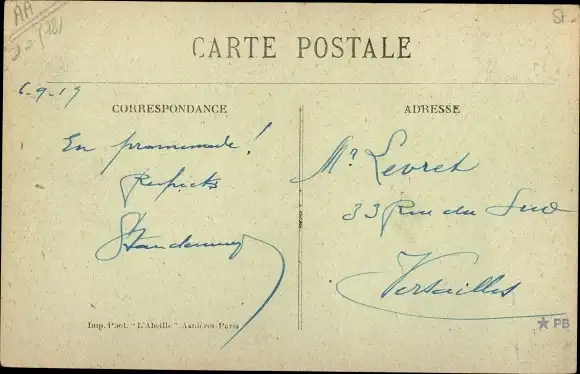 AA
CARTE POSTALE
6-9-19
CORRESPONDANCE
En promenade!
Respects
ADRESSE
Mr. Levret
33 Rue du Sud
Versailles
Imp. Phot. "L'Abeille" Asnières-Paris
PB